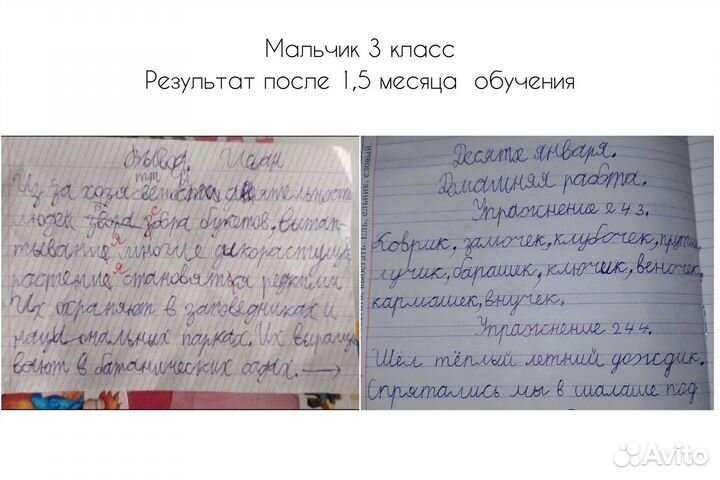 Мальчик 3 класс
Результат после 1,5 месяца обучения
Вывод Иван
Из за хозяствености деятельности
людей збора букетов, вытап-
тывание многие дикорастущие
растение становяться редкими
Их охраняют в заповедниках и
национальных парках. Их выращи
вают в батанических садах.
ель, ельник, еловый.
Десятое января.
Домашняя работа.
Упражнение 243.
Коврик, замочек, клубочек, прутик,
лучик, барашек, ключик, веночек,
кармашек, внучек.
Упражнение 244.
Шёл тёплый летний дождик.
Спрятались мы в шалаше под
Avito